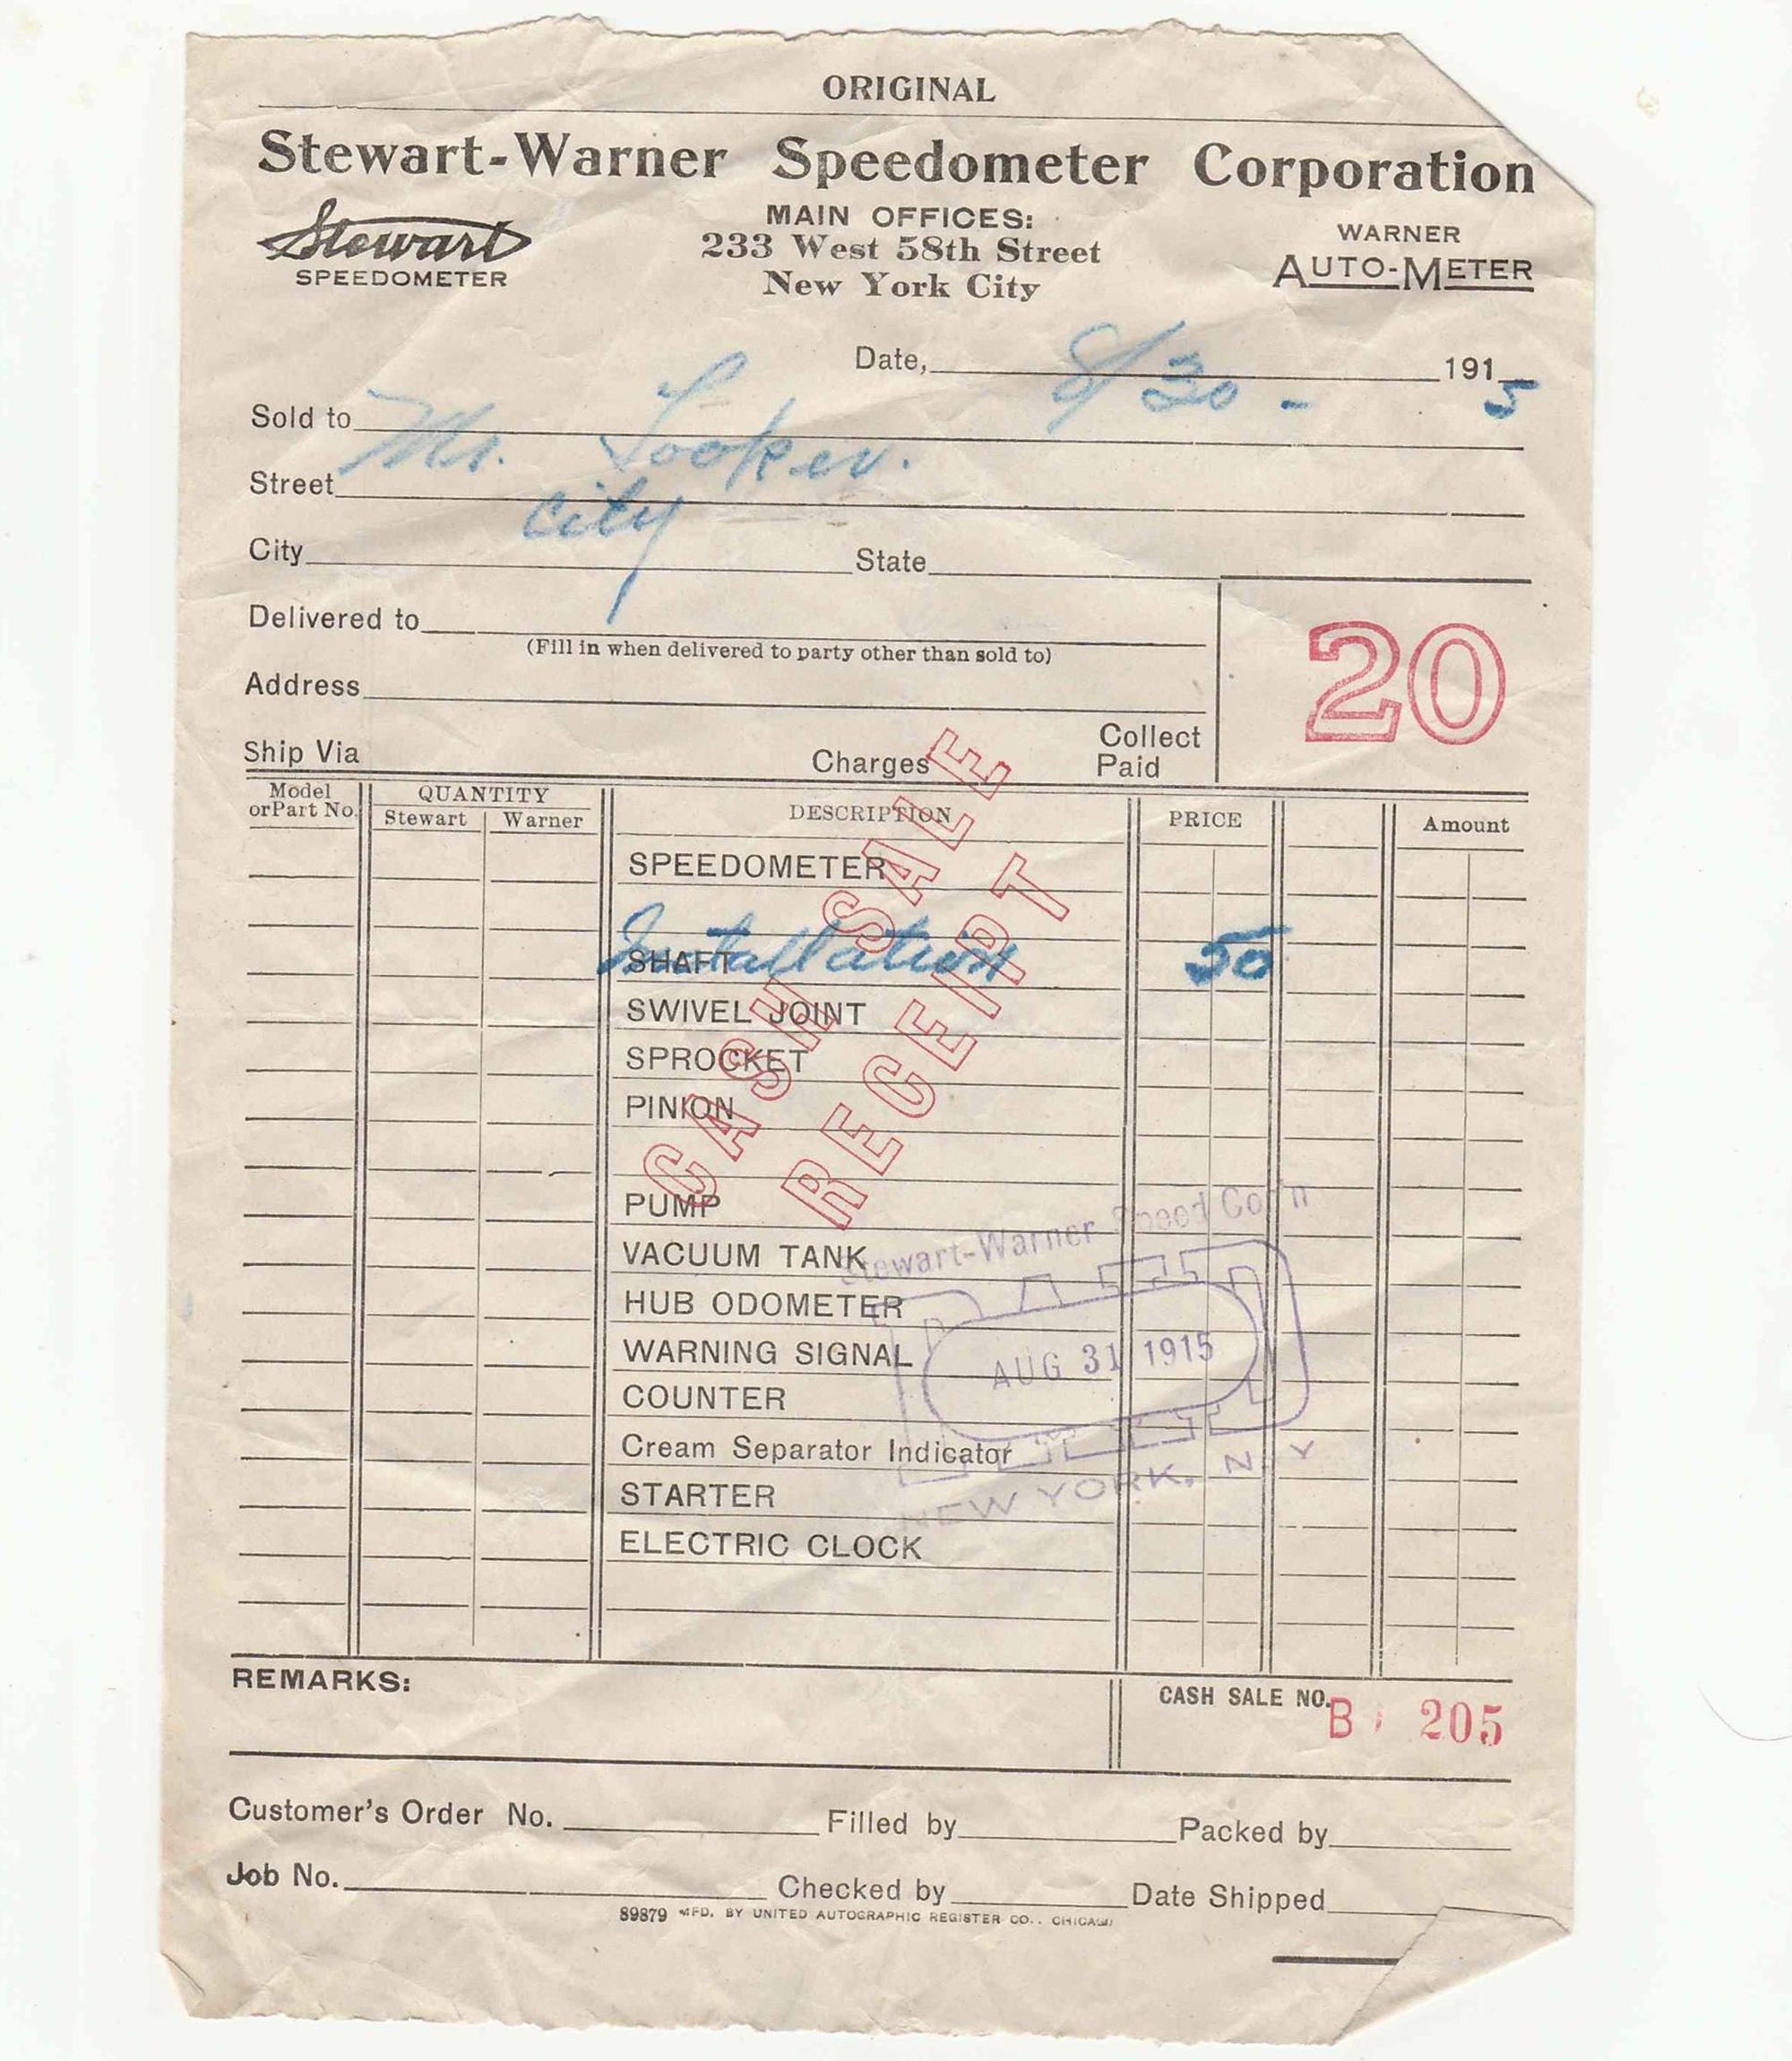 ORIGINAL
Stewart-Warner Speedometer Corporation
Stewart
SPEEDOMETER
MAIN OFFICES:
233 West 58th Street
New York City
WARNER
AUTO-METER
Date, 8/30 - 1915
Sold to Mr. Tooker.
Street
city
City State
Delivered to
(Fill in when delivered to party other than sold to)
Address
20
Ship Via Charges Collect
Paid
Model
or Part No. QUANTITY DESCRIPTION PRICE Amount
Stewart Warner
SPEEDOMETER
Installation 50
SHAFT
SWIVEL JOINT
SPROCKET
PINION
CASH SALE
RECEIPT
PUMP
VACUUM TANK
HUB ODOMETER
WARNING SIGNAL
COUNTER
Cream Separator Indicator
STARTER
ELECTRIC CLOCK
Stewart-Warner Speed Cor'n
AUG 31 1915
NEW YORK, N.Y
REMARKS:
CASH SALE NO. B 205
Customer's Order No. Filled by Packed by
Job No. Checked by Date Shipped
89879 MFD. BY UNITED AUTOGRAPHIC REGISTER CO., CHICAGO